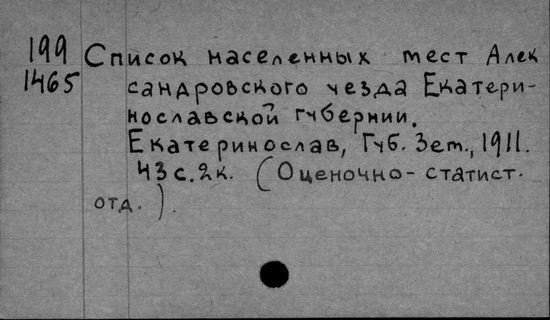 199 Список населенных мест Алек
1465 сандровского уезда Екатери-
нославской губернии.
Екатеринослав, Губ. Зем., 1911.
43 с. 2 к. (Оценочно-статист.
отд.).